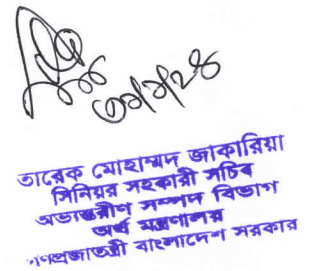 তারেক মোহাম্মদ জাকারিয়া
সিনিয়র সহকারী সচিব
অভ্যন্তরীণ সম্পদ বিভাগ
অর্থ মন্ত্রণালয়
গণপ্রজাতন্ত্রী বাংলাদেশ সরকার